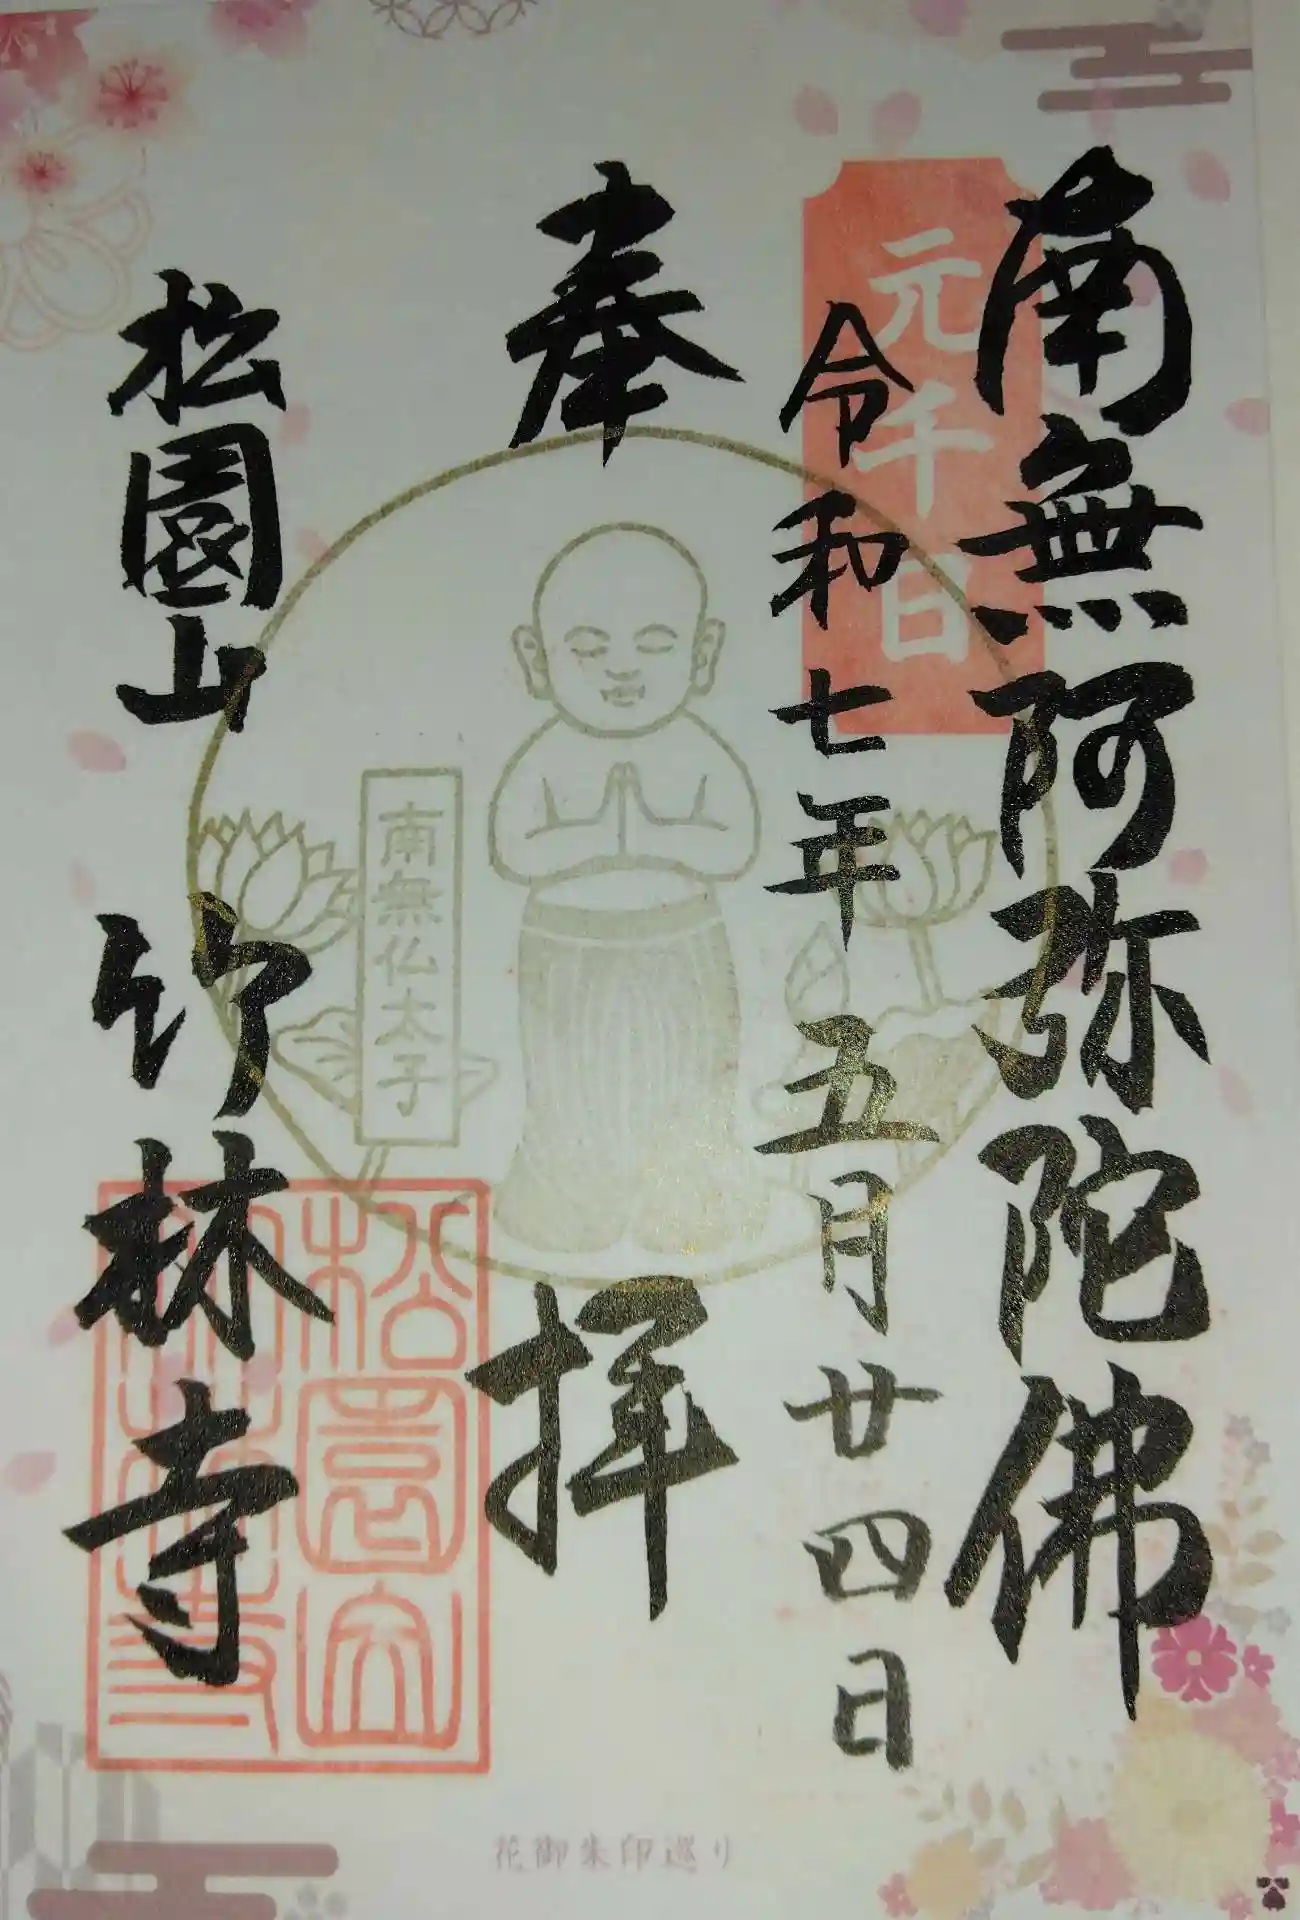 南無阿弥陀佛
元千日
令和七年五月廿四日
奉拝
南無仏太子
松園山 竹林寺
花御朱印巡り